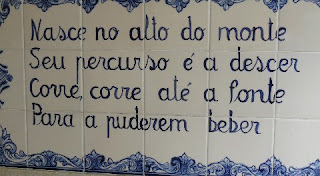 Nasce no alto do monte
Seu percurso é a descer
Corre, corre até a fonte
Para a puderem beber